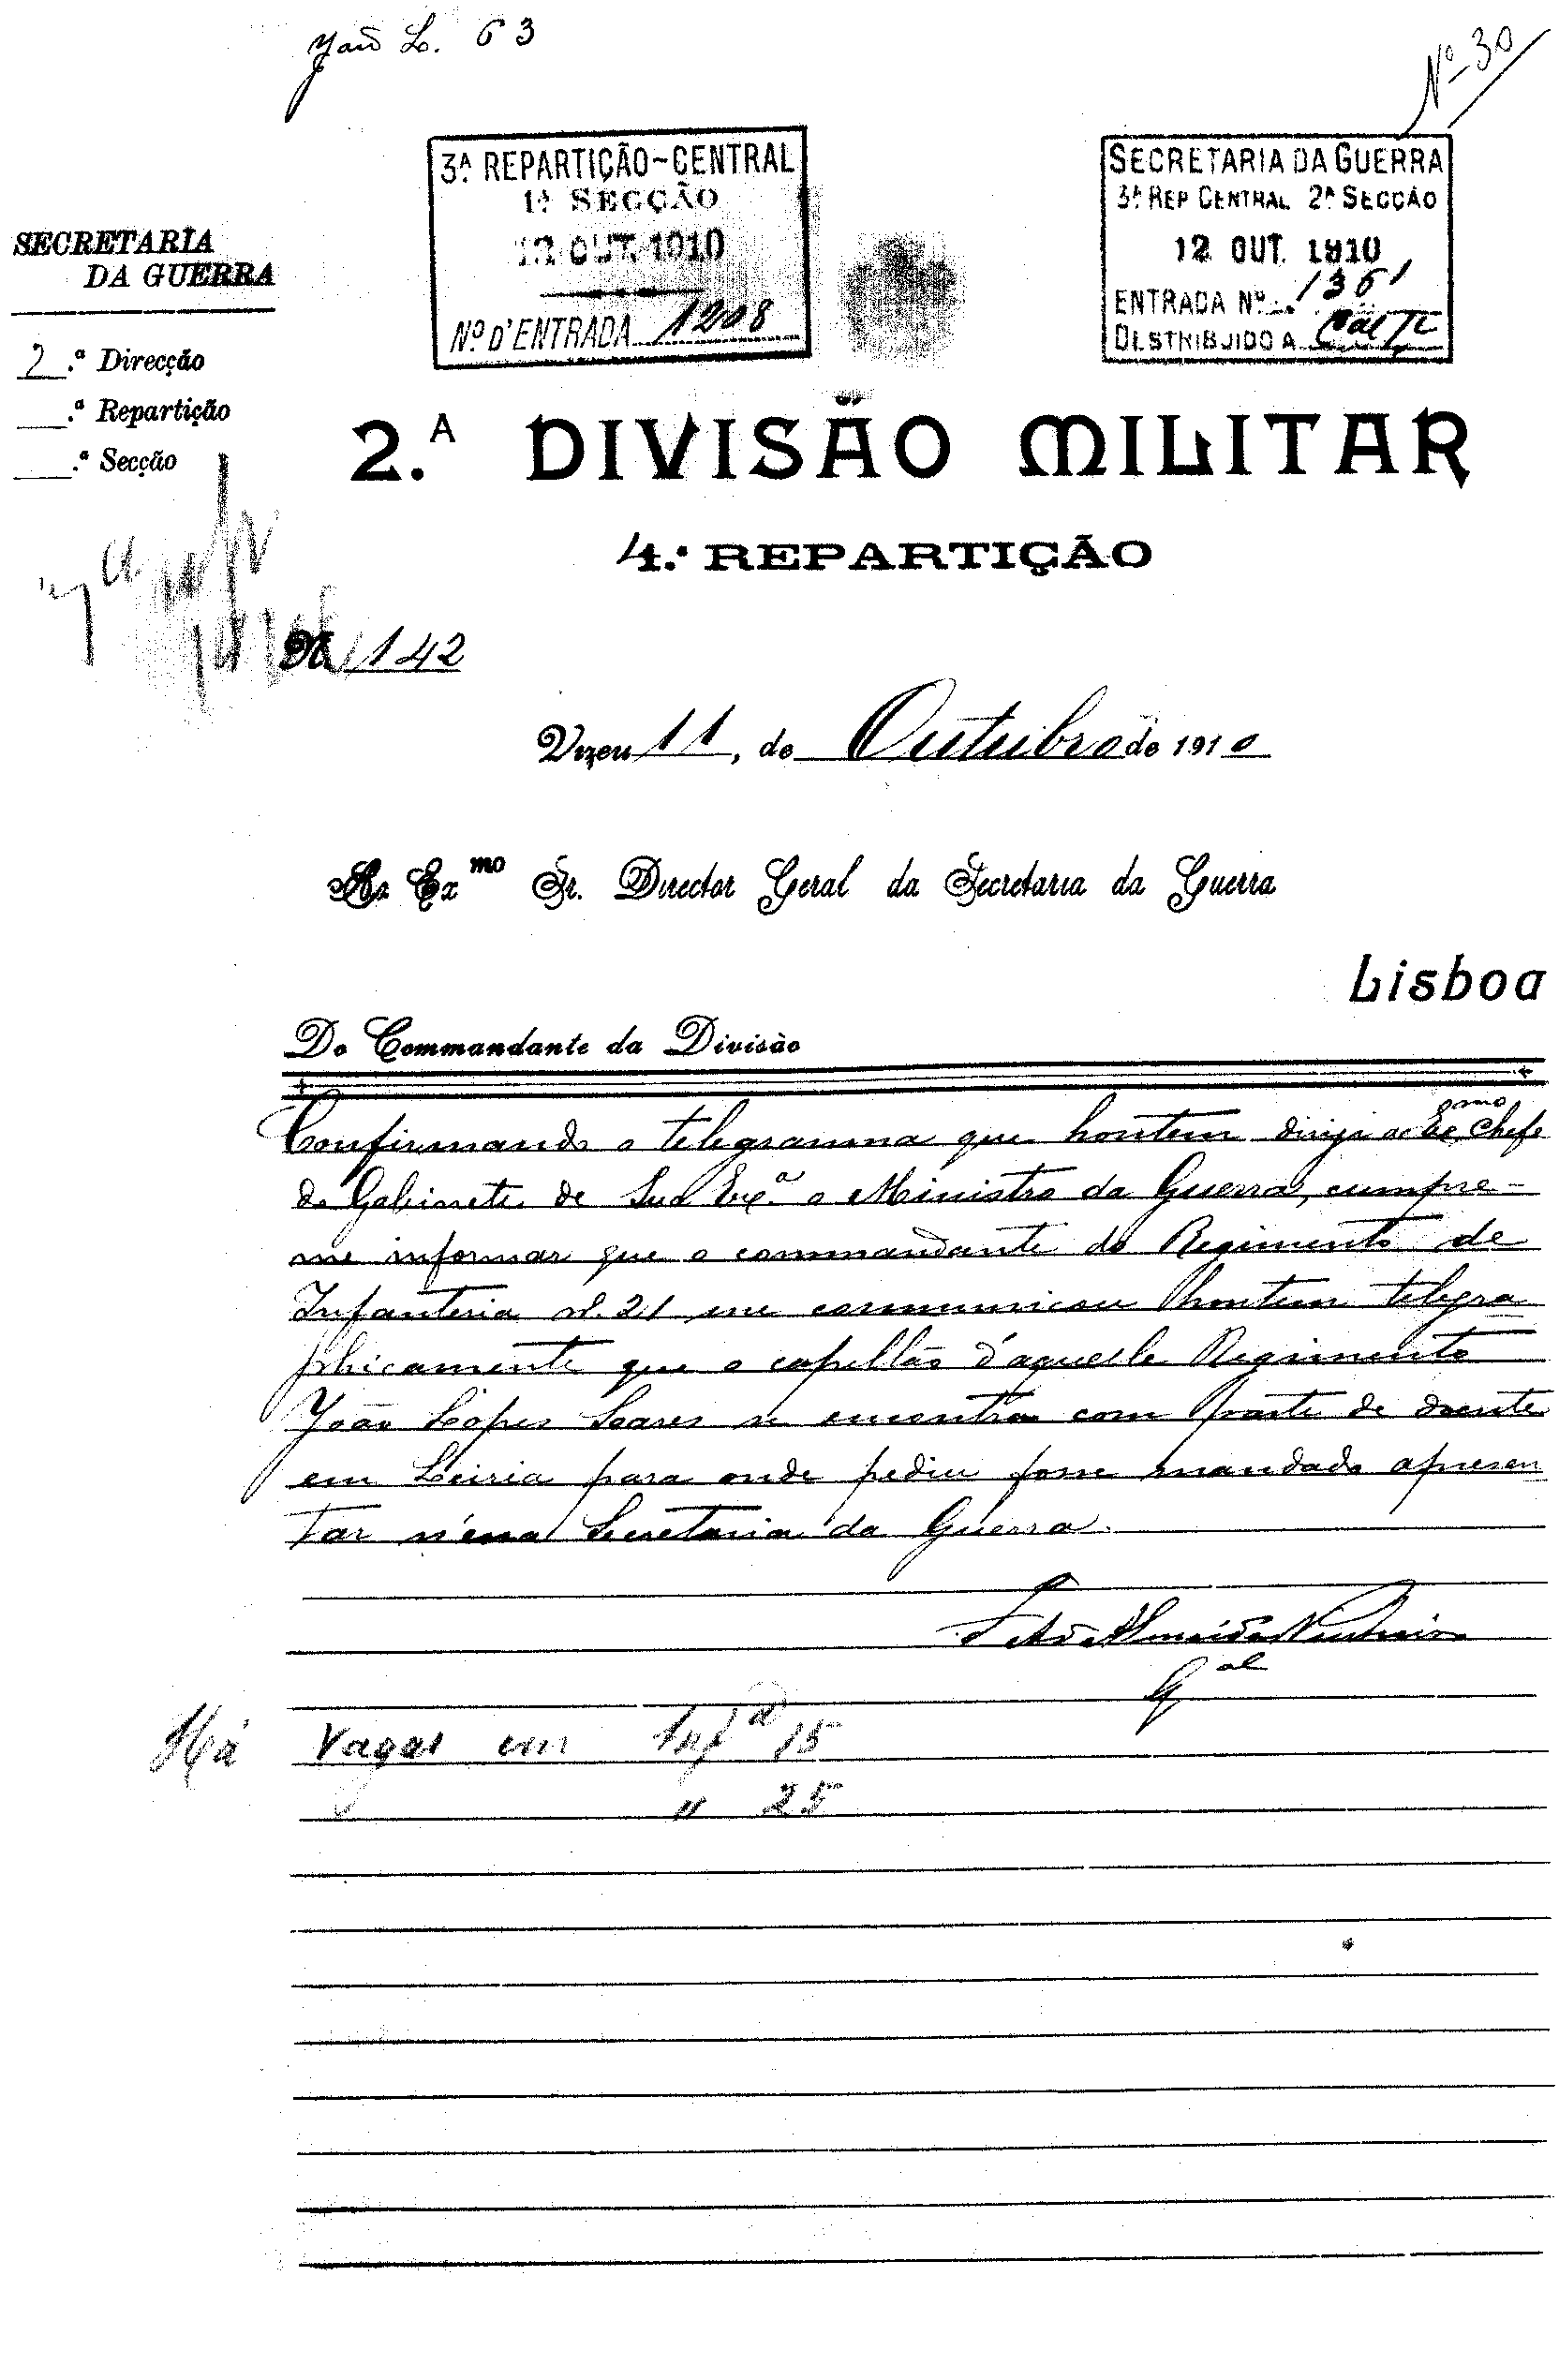 João L. 63
Nº 30
3ª REPARTIÇÃO-CENTRAL
1ª SECÇÃO
12 OUT. 1910
Nº D'ENTRADA 1208
SECRETARIA DA GUERRA
3ª REP CENTRAL 2ª SECÇÃO
12 OUT. 1910
ENTRADA Nº 1361
DISTRIBUIDO A
SECRETARIA
DA GUERRA
2.ª Direcção
.ª Repartição
.ª Secção
2.ª DIVISÃO MILITAR
4.ª REPARTIÇÃO
142
Vizeu 11, de Outubro de 1910
Ao Exmo Sr. Director Geral da Secretaria da Guerra
Lisboa
Do Commandante da Divisão
Confirmando o telegramma que hontem dirigi ao Chefe
do Gabinete de Sua Exª o Ministro da Guerra, cumpre-
me informar que o commandante do Regimento de
Infanteria nº 21 me communicou hontem telegra
phicamente que o capellão d'aquelle Regimento
João Lopes Soares se encontra com parte de doente
em Leiria para onde pediu fosse mandado apresen
tar n'essa Secretaria da Guerra.
Gal
Há vagas em Infª 15
" 25